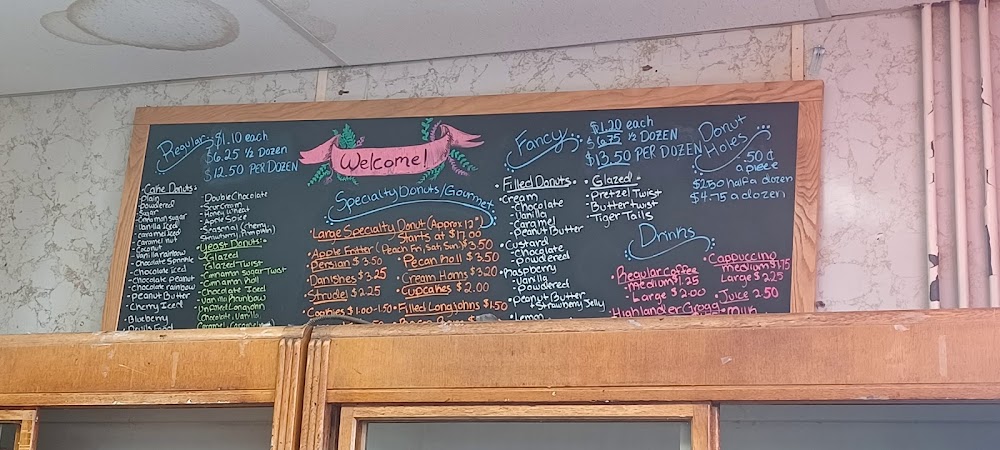 Regular
$1.10 each
$6.25 ½ Dozen
$12.50 PER DOZEN
Cake Donuts:
Plain
Powdered
Sugar
Cinnamon sugar
Vanilla Iced
Caramel Iced
Caramel nut
Coconut
Vanilla rainbow
Chocolate Sprinkle
Chocolate Iced
Chocolate peanut
Chocolate rainbow
Peanut Butter
Cherry Iced
Blueberry
Double Chocolate
Sour Cream
Honey Wheat
Apple Spice
Seasonal (Cherry
Strawberry, Pumpkin)
Yeast Donuts:
Glazed
Glazed Twist
Cinnamon Sugar Twist
Cinnamon Roll
Chocolate Iced
Vanilla Rainbow
Unfilled Longjohn
Chocolate, Vanilla
Welcome!
Specialty Donuts/Gourmet
Large Specialty Donut (Approx 12")
Starts at $17.00
Apple Fritter (Peach Fri, Sat, Sun) $3.50
Persian $3.50
Pecan Roll $3.50
Danishes $3.25
Cream Horns $3.20
Strudel $2.25
Cupcakes $2.00
Cookies $1.00-1.50
Filled Longjohns $1.50
Fancy
$1.20 each
$6.75 ½ DOZEN
$13.50 PER DOZEN
Filled Donuts:
Cream
Chocolate
Vanilla
Caramel
Peanut Butter
Custard
Chocolate
Powdered
Raspberry
Vanilla
Powdered
Peanut Butter
Strawberry Jelly
Lemon
Glazed:
Pretzel Twist
Butter twist
Tiger Tails
Donut
Holes
.50¢
a piece
$2.50 half a dozen
$4.75 a dozen
Drinks
Regular coffee
medium $1.25
Large $2.00
Highlander Grogg
Cappuccino
medium $1.75
Large $2.25
Juice 2.50
Milk